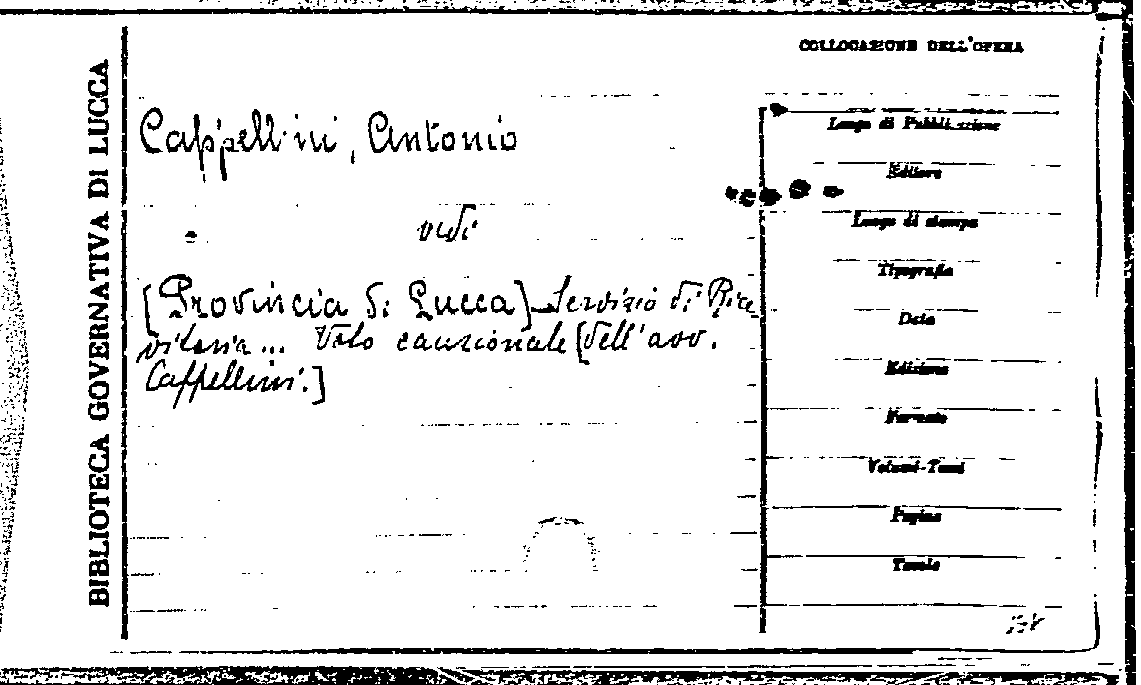 BIBLIOTECA GOVERNATIVA DI LUCCA
COLLOCAZIONE DELL'OPERA
Cappellini, Antonio
vedi
[Provincia di Lucca] - Servizio di Rice
vitoria... Voto cauzionale [dell'avv.
Cappellini.]
Luogo di Pubblicazione
Editore
Luogo di stampa
Tipografia
Data
Edizione
Formato
Volumi-Tomi
Pagine
Tavole